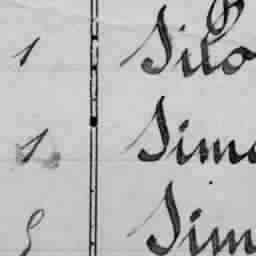 1 Silo
1 Sime
5 Sim